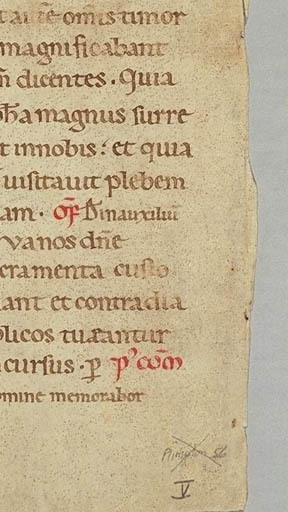 t autē omis timor
magnificabant
m̄ dicentes · Quia
ph̄a magnus surre
t innobis : et quia
uisitauit plebem
am · Off D̄inauxiliū
vanos dn̄e
cramenta custo
iant et contradia
olicos tueantur
cursus · p̄ p' com̄
omine memorabor
V